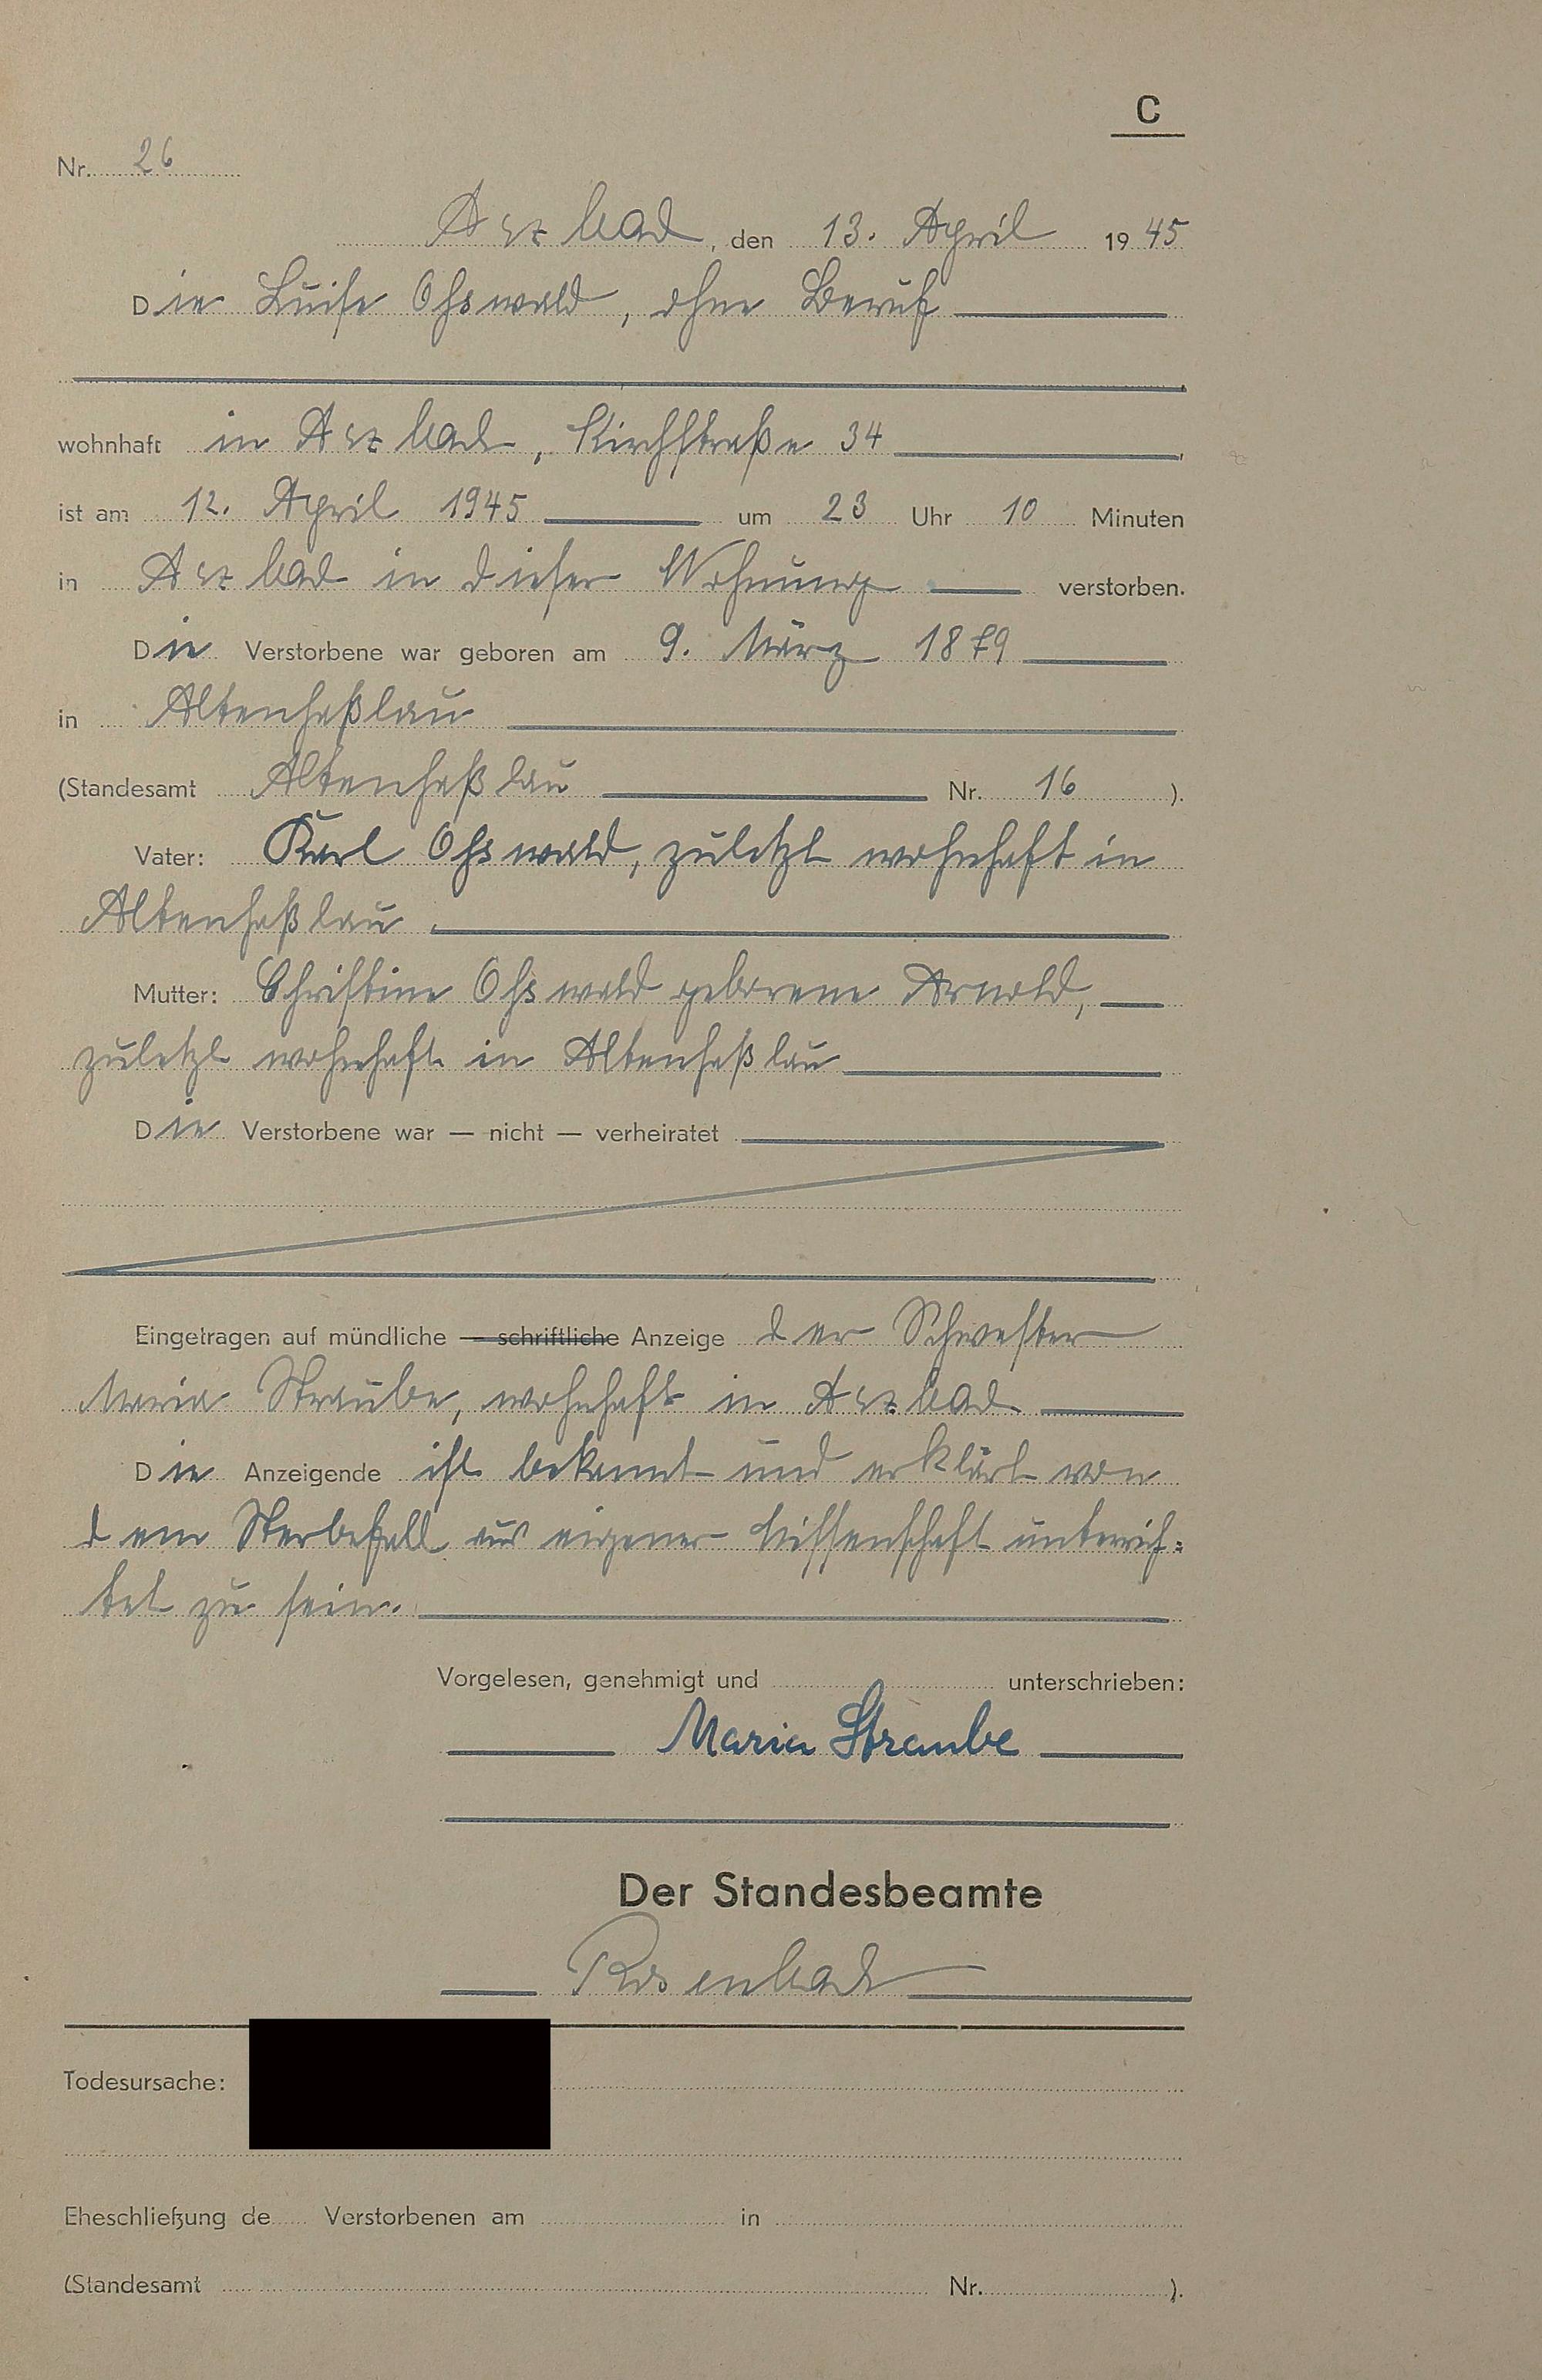 C
Nr. 26
Arzbach, den 13. April 1945
Die Luise Oßwald, ohne Beruf
wohnhaft in Arzbach, Kirchstraße 34
ist am 12. April 1945 um 23 Uhr 10 Minuten
in Arzbach in dieser Wohnung verstorben.
Die Verstorbene war geboren am 9. März 1879
in Altenhaßlau
(Standesamt Altenhaßlau Nr. 16 ).
Vater: Karl Oßwald, zuletzt wohnhaft in
Altenhaßlau
Mutter: Christine Oßwald geborene Arnold,
zuletzt wohnhaft in Altenhaßlau
Die Verstorbene war — nicht — verheiratet
Eingetragen auf mündliche — schriftliche Anzeige der Schwester
Maria Straube, wohnhaft in Arzbach
Die Anzeigende ist bekannt und erklärt von
dem Sterbefall aus eigener Wissenschaft unterrich=
tet zu sein.
Vorgelesen, genehmigt und unterschrieben:
Maria Straube
Der Standesbeamte
Rosenbach
Todesursache:
Eheschließung de Verstorbenen am in
(Standesamt Nr. ).